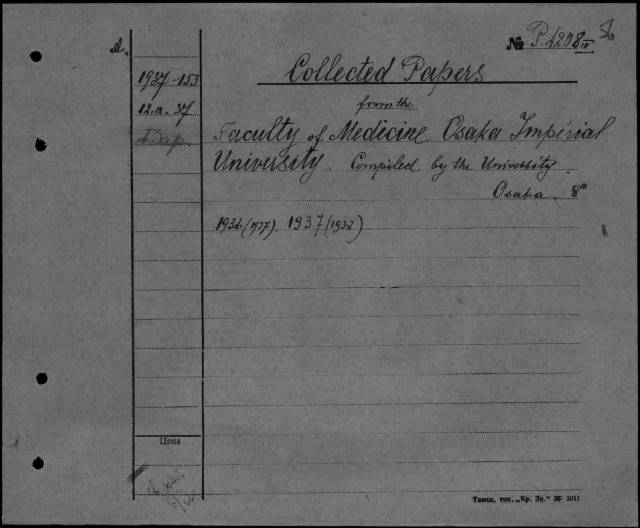 A.
№ P.4208 IV
Collected Papers
1937-153
from the
12.IX.37
Дар.
Faculty of Medicine Osaka Imperial
University. Compiled by the University.
Osaka. 8°
1936 (1937). 1937 (1938)
Цена
Томск, тип. „Кр. Зн."